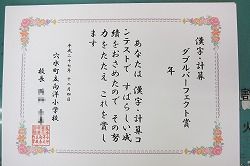 漢字・計算
ダブルパーフェクト賞
年
あなたは 漢字・計算コ
ンテストで すばらしい成
績をおさめたので その努
力をたたえ これを賞し
ます
平成二十七年 十二月四日
六ケ町立南洋小学校
校長